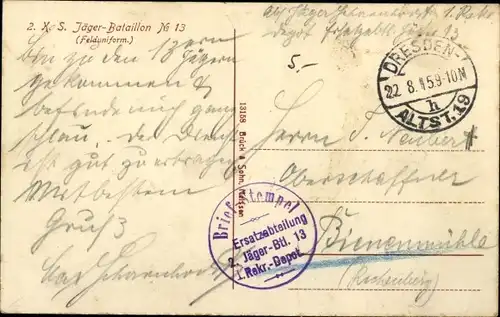 2. K. S. Jäger-Bataillon № 13
(Felduniform.)
Bin zu den 13er
Jägern
gekommen &
befinde mich ganz
schlau. Der Dienst
ist gut zu ertragen
Mit besten
Gruß
13158 Brück & Sohn, Meissen
5.-
Abs. Jäger 1. Rekr.
Depot Ersatzbtl. Jäg. 13
DRESDEN-
22 8.15.9-10N
h
ALTST.19
Herrn F. Neubert
Oberschaffner
Bienenmühle
(Rechenberg)
Briefstempel
Ersatzabteilung
2. Jäger-Btl. 13
1. Rekr.-Depot